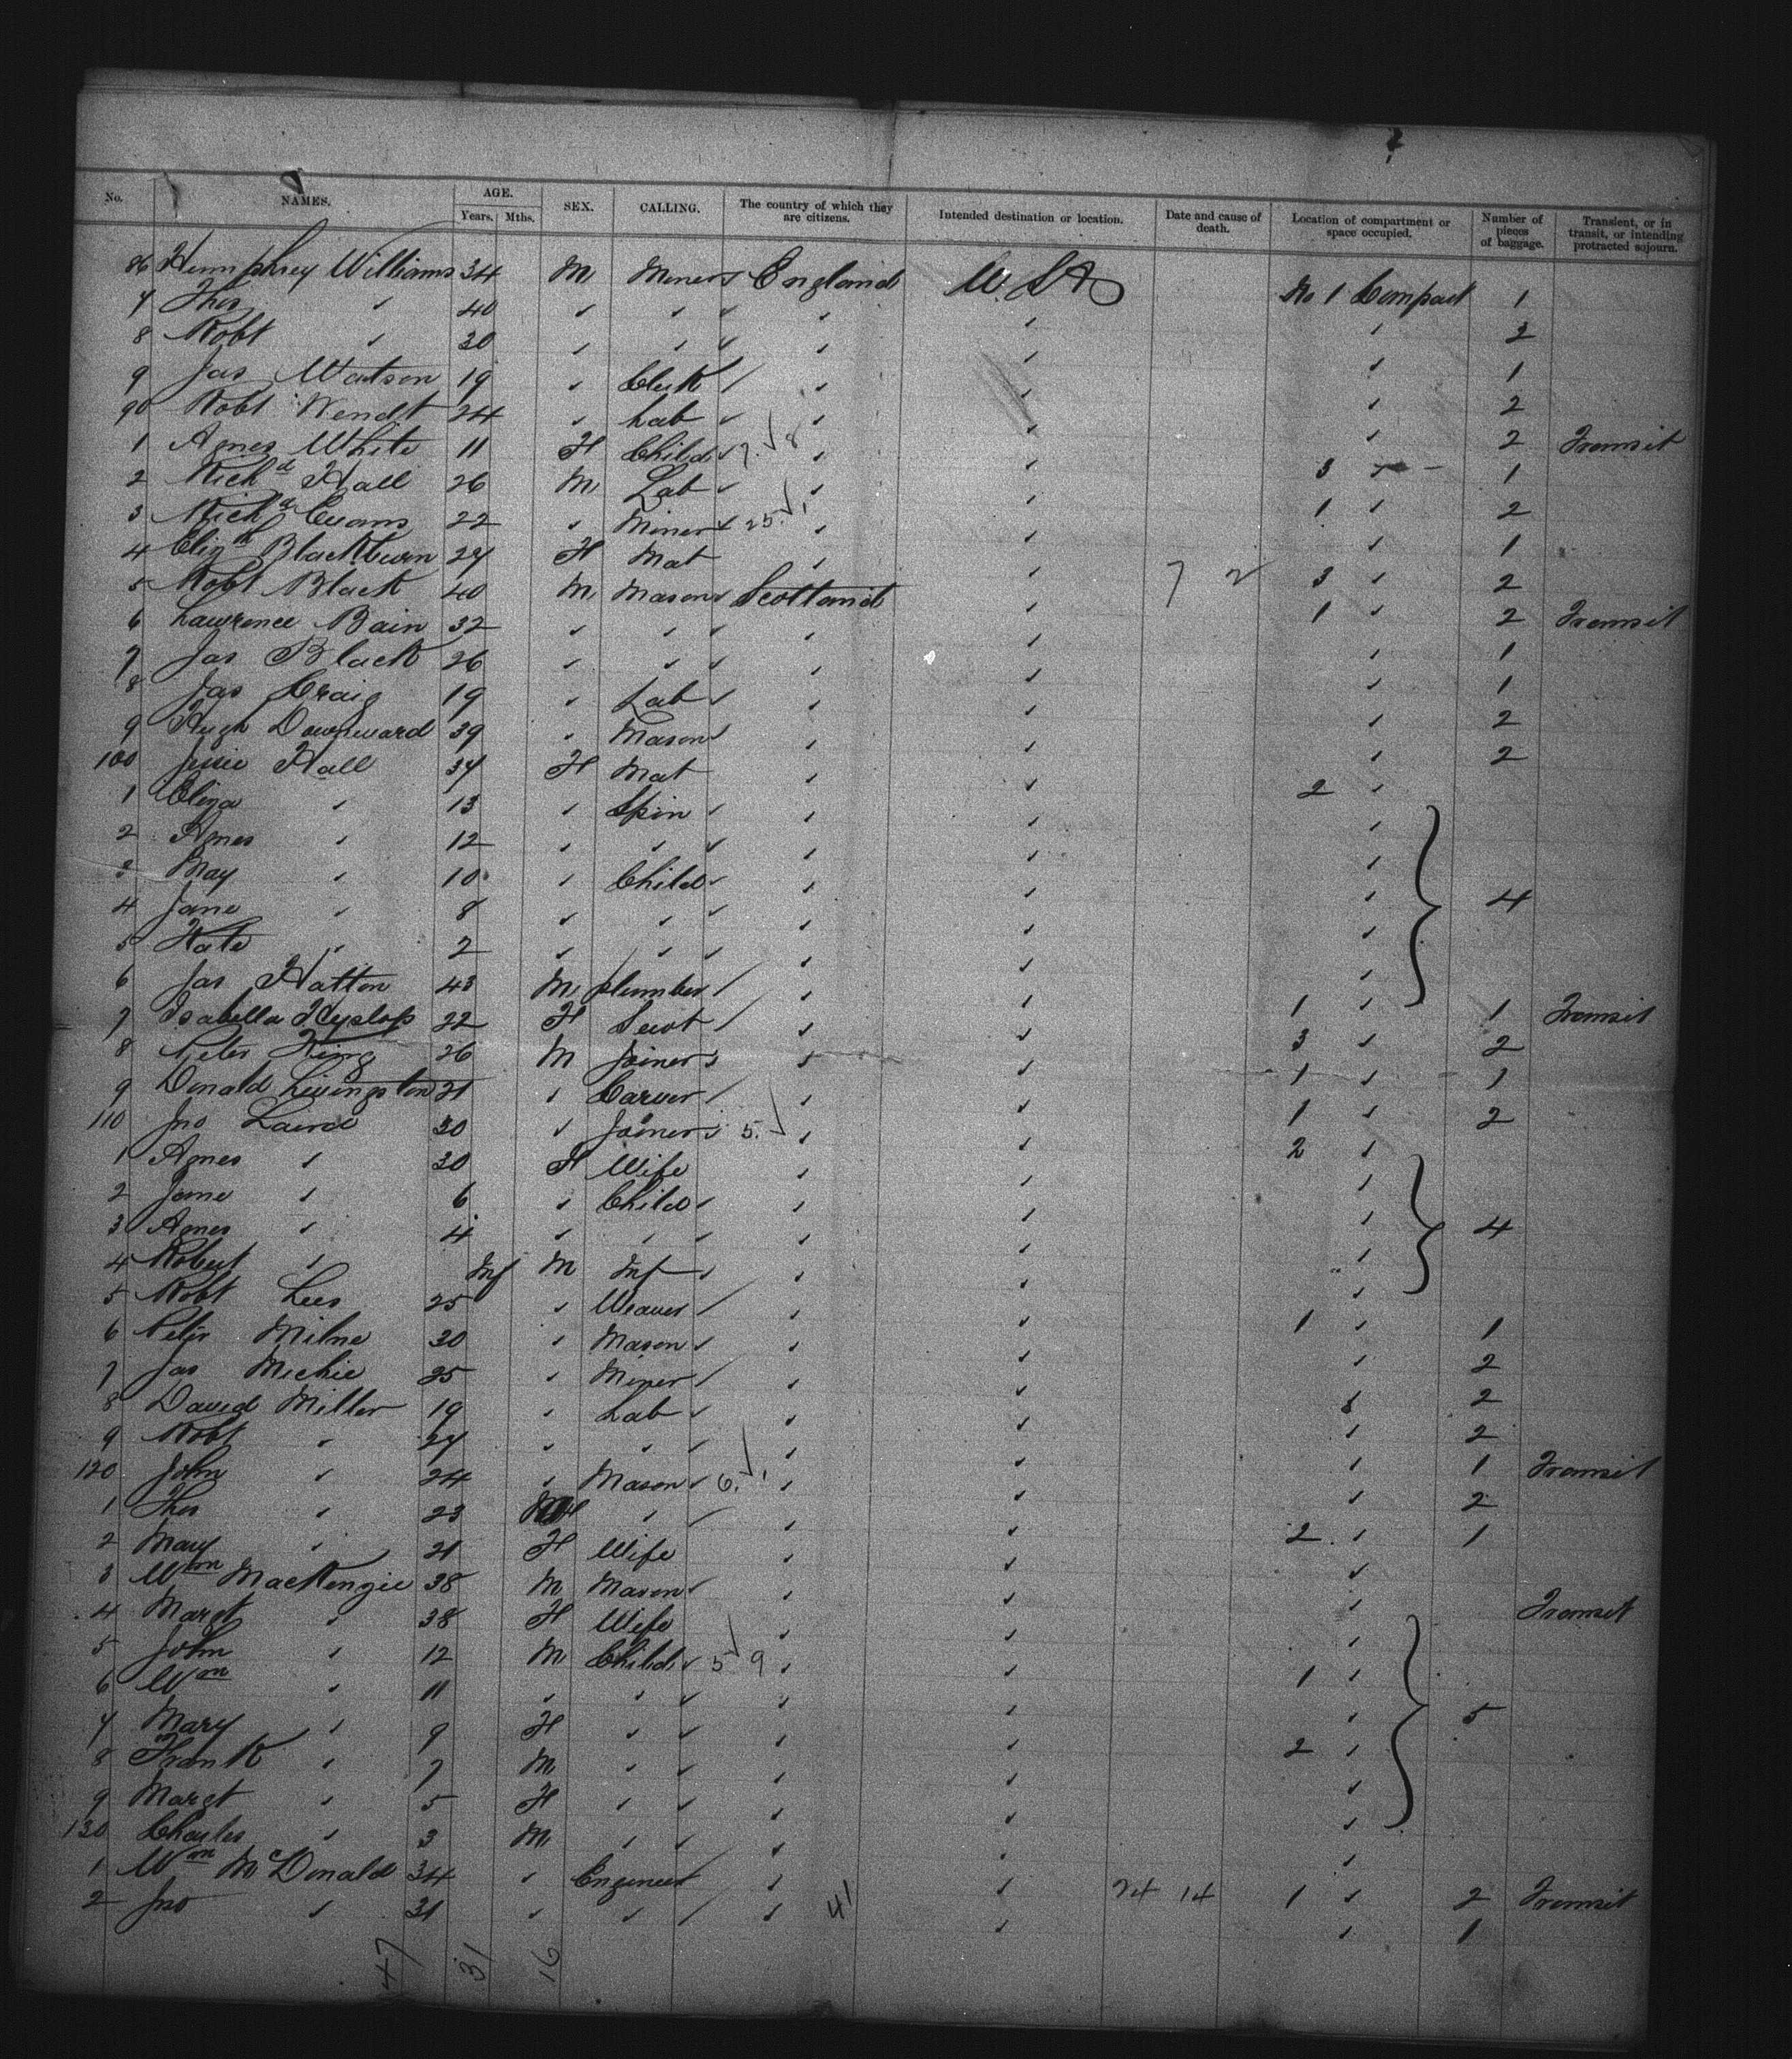 No. NAMES. AGE. Years. Mths. SEX. CALLING. The country of which they are citizens. Intended destination or location. Date and cause of death. Location of compartment or space occupied. Number of pieces of baggage. Transient, or in transit, or intending protracted sojourn.
86 Humphrey Williams 34 M Miner England U.S.A No 1 Compart 1
7 Thos " 40 " " " " " 2
8 Robt " 30 " " " " " 1
9 Jas Watson 19 " Clerk " " " 2
90 Robt Wendt 24 " Lab " " " 2 Transit
1 Agnes White 11 F Child " " 3 " 1
2 Richd Hall 26 M Lab " " 1 " 2
3 Richd Evans 22 " Miner 25 " " " 1
4 Elizth Blackburn 27 F Mat " " 7 2 3 " 2
5 Robt Black 40 M Mason Scotland " 1 " 2 Transit
6 Lawrence Bain 32 " " " " " 1
7 Jas Black 26 " " " " " 1
8 Jas Craig 19 " Lab " " " 2
9 Hugh Downward 39 " Mason " " " 2
100 Jessie Hall 37 F Mat " " 2 "
1 Eliza " 13 " Spin " " "
2 Agnes " 12 " " " " "
3 May " 10 " Child " " " 4
4 Jane " 8 " " " " "
5 Kate " 2 " " " " "
6 Jas Hatton 43 M plumber " " 1 " 1 Transit
7 Isabella Hyslop 22 F Servt " " 3 " 2
8 Peter King 26 M Joiner " " 1 " 1
9 Donald Livingston 21 " Carver " " 1 " 2
110 Jno Laird 30 " Joiner 5 " " 2 "
1 Agnes " 30 F Wife " " "
2 Jane " 6 " Child " " "
3 Agnes " 4 " " " " " 4
4 Robert " Inf M Inf " " "
5 Robt Lees 25 " Weaver " " 1 " 1
6 Peter Milne 30 " Mason " " " 2
7 Jas Michie 25 " Miner " " " 2
8 David Miller 19 " Lab " " " 2
9 Robt " 27 " " " " " 1 Transit
120 John " 24 " Mason 6 " " " 2
1 Thos " 23 M " " " 2 " 1
2 Mary " 21 F Wife " " "
3 Wm MacKenzie 38 M Mason " " " Transit
4 Margt " 38 F Wife " " "
5 John " 12 M Child 5 9 " " 1 "
6 Wm " 11 " " " " " 5
7 Mary " 9 F " " " 2 "
8 Frank " 7 M " " " "
9 Margt " 5 F " " " "
130 Charles " 3 M " " " "
1 Wm McDonald 34 " Engineer " " 24 14 1 " 2 Transit
2 Jno " 31 " " " 41 " " 1
47 31 16